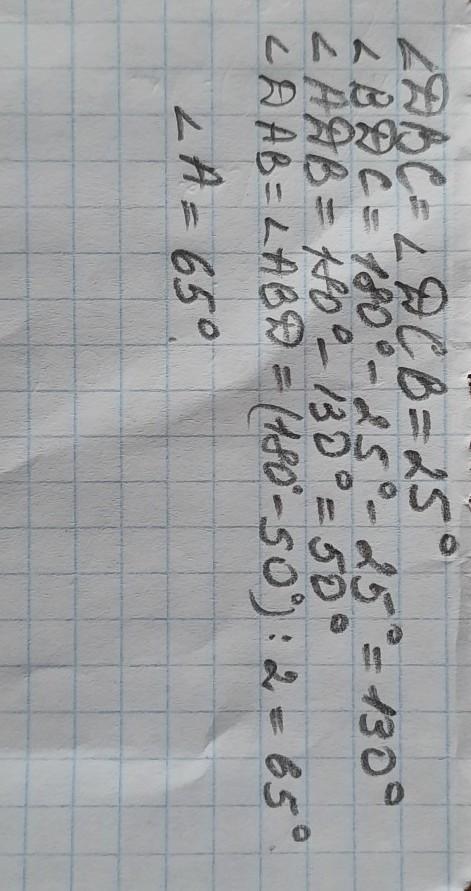 ∠ДBC = ∠ДCB = 25°
∠BДC = 180° - 25° - 25° = 130°
∠AДB = 180° - 130° = 50°
∠ДAB = ∠ABД = (180° - 50°) : 2 = 65°
∠A = 65°.